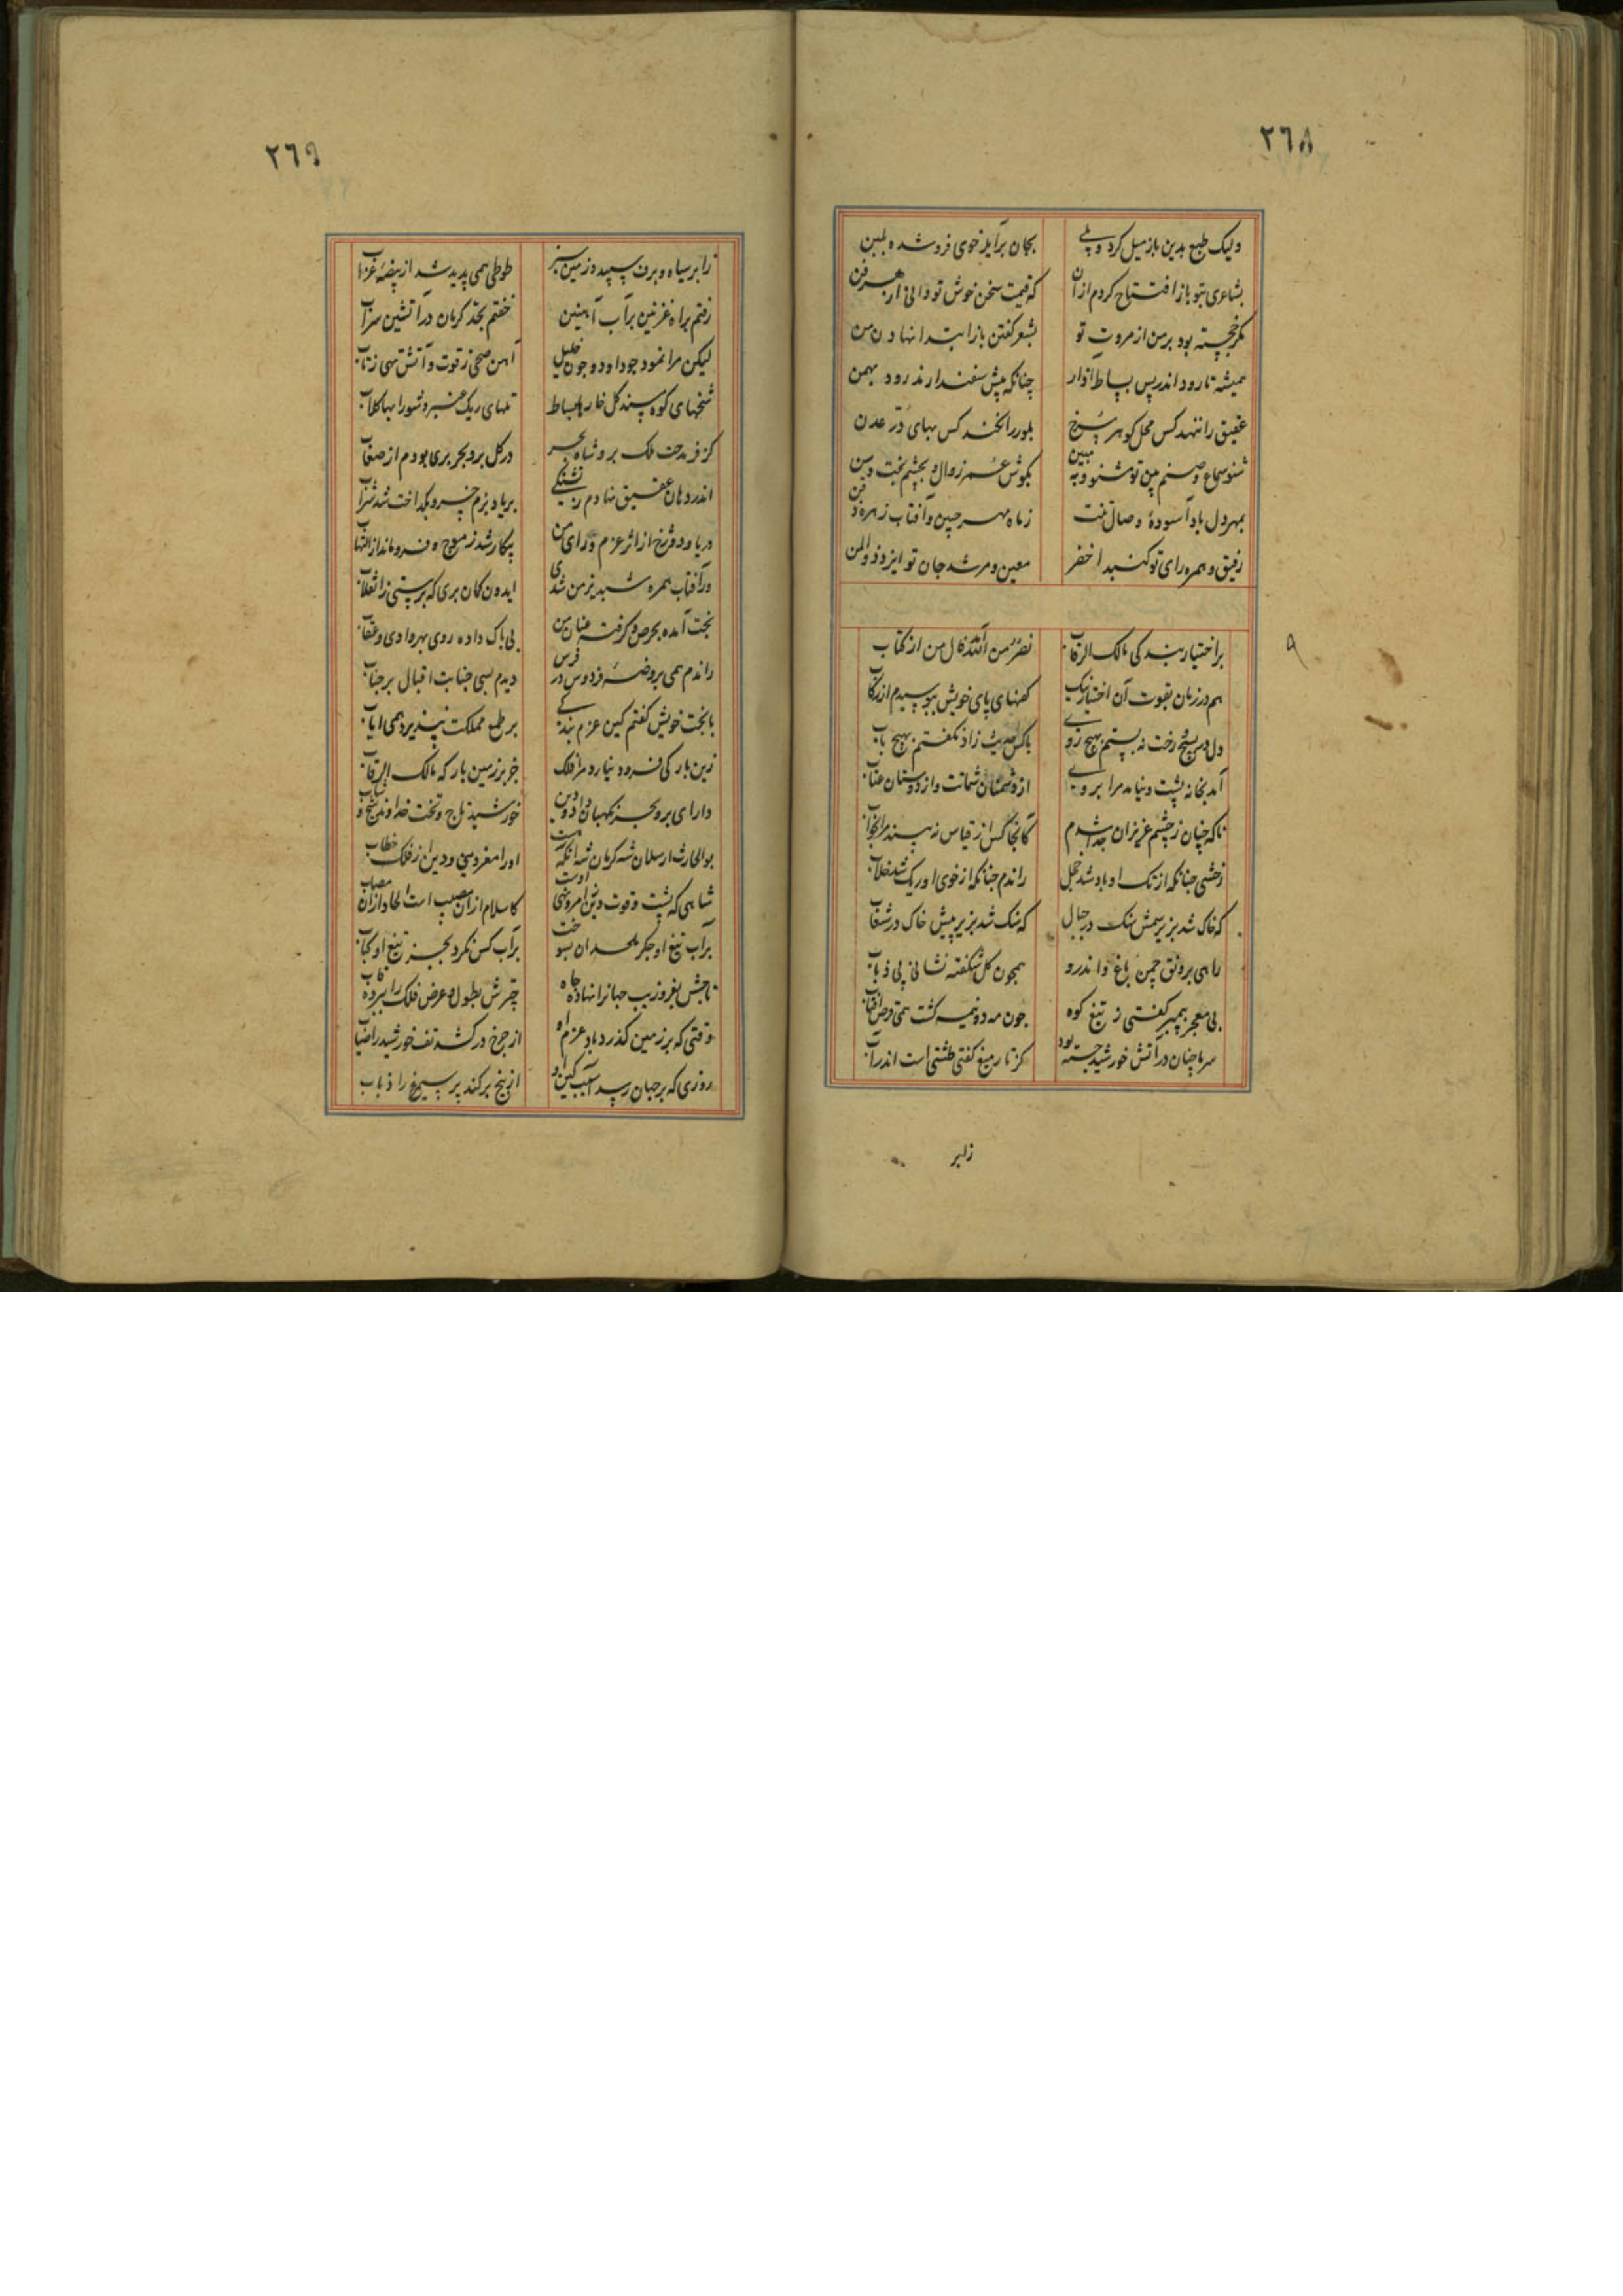 ٢٦٨
ولیک طبع بدین باز میل کرد ولی بجان برآید خوی فروشده بلبن
بشاعری بتو باز افتتاح کردم از آن که قیمت سخن خوش تو دانی از هر فن
مگر خجسته بود بر من از مروت تو بشعر گفتن باز ابتدا نهادن من
همیشه تا رود اندر پس بساط آذار چنانکه پیش سفندارمذ رود بهمن
عقیق را ننهد کس محل گوهر سرخ بلور را نخند کس بهای در عدن
شنو سماع و صنم بین تو مشنو و مبین بگوش عمر زوال و بچشم بخت وسن
بمهر دل باد آسوده وصال تنت ز ماه مهر جبین و آفتاب زهره ذقن
رفیق و همره رای تو گنبد اخضر معین و مرشد جان تو ایزد ذوالمن
بر اختیار بندگی مالک الرقاب نصر من الله فال من از کتاب
هم در زمان بقوت آن اختیار نیک کفهای پای خویش ببوسیدم از رکاب
دل در بسیج رخت نه بستم بهیچ روی باکس حدیث زاد نگفتم بهیچ باب
آمد بخانه پشت و نیامد مرا بروی از دشمنان شماتت و از دوستان عتاب
ناگه چنان ز چشم عزیزان جدا شدم کانجا کس از قیاس نه بیند مرا بخواب
زخشی چنانکه از تک او باد شد خجل راندم چنانکه از خوی او ریگ شد خلاب
گه خاک شد بزیر سمش سنگ در جبال گه سنگ شد بزیر پیش خاک در شعاب
راهی برونق چمن باغ و اندرو همچون گل شگفته نشانی پی ذباب
بی معجز پیمبر گفتی ز تیغ کوه چون مه دو نیمه گشت همی قرص آفتاب
سرما چنان در آتش خورشید جسته بود کز تار میغ گفتی طشتی است اندر آب
زابر
٩
٢٦٩
زابر سیاه و برف سپید و زمین سبز طوطی همی پدید شد از بیضه غراب
رفتم براه غزنین بر آب آهنین خفتم بحد کرمان در آتشین سراب
لیکن مرا نمود چو داود و چون خلیل آهن صحی ز قوت و آتش تهی ز تاب
شخهای کوه سبزه گل خارها بساط تلهای ریگ عنبر و شورابها گلاب
کز فر مدحت ملک بر و شاه بحر در کل بر و بحر بری بودم از صعاب
اندر دهان عقیق نهادم ز تشنگی بر یاد بزم خسرو بگداخت شد شراب
دریا و دوزخ از اثر عزم و رای من بیکار شد ز موج و فرو ماند از التهاب
ور آفتاب همره شبدیز من شدی ایدون گمان بری که برستی ز انقلاب
بختم آمده بحرص و گرفته عنان من بی باک داده روی بهر وادی و عقاب
راندم همی بروضه فردوس در فرس دیدم بسی جنابت اقبال بر جناب
با بخت خویش گفتم کین عزم بندگی بر طبع مملکت نپذیرد همی ایاب
زین بارگی فرود نیارد مرا فلک جز بر زمین بارگه مالک الرقاب
دارای بر و بحر نگهبان داد و دین خورشید تاج و تخت خداوند شیخ و شاب
بوالحارث ارسلان شه کرمان شه آنکه هست او را مغز دنیی و دین از فلک خطاب
شاهی که پشت و قوت دین امروز اوست کاسلام ازان مصیب است الحاد ازان مصاب
بر آب تیغ او جگر ملحدان بسوخت بر آب کس نکرد بجز تیغ او کباب
تاجش بفر و زیب جهانرا نهاده جاه چترش بطول و عرض فلک را ببرده آب
وقتی که بر زمین گذرد باد عزم او از چرخ درکشد تف خورشید را ضیاب
روزی که بر جهان رسد آسیب کین او از بیخ برکند پر سیمرغ را ذباب